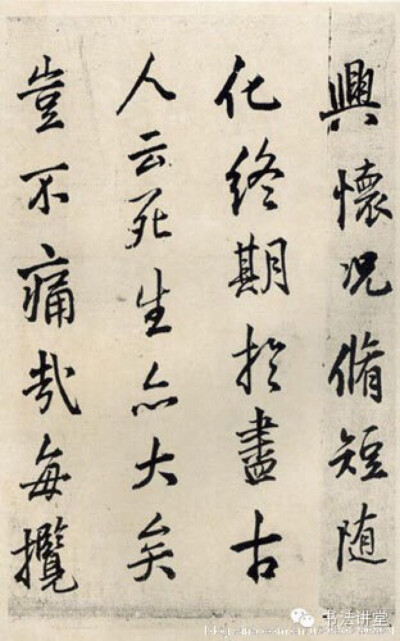 興懷况脩短随
化終期於盡古
人云死生亦大矣
豈不痛哉每攬
书法讲堂